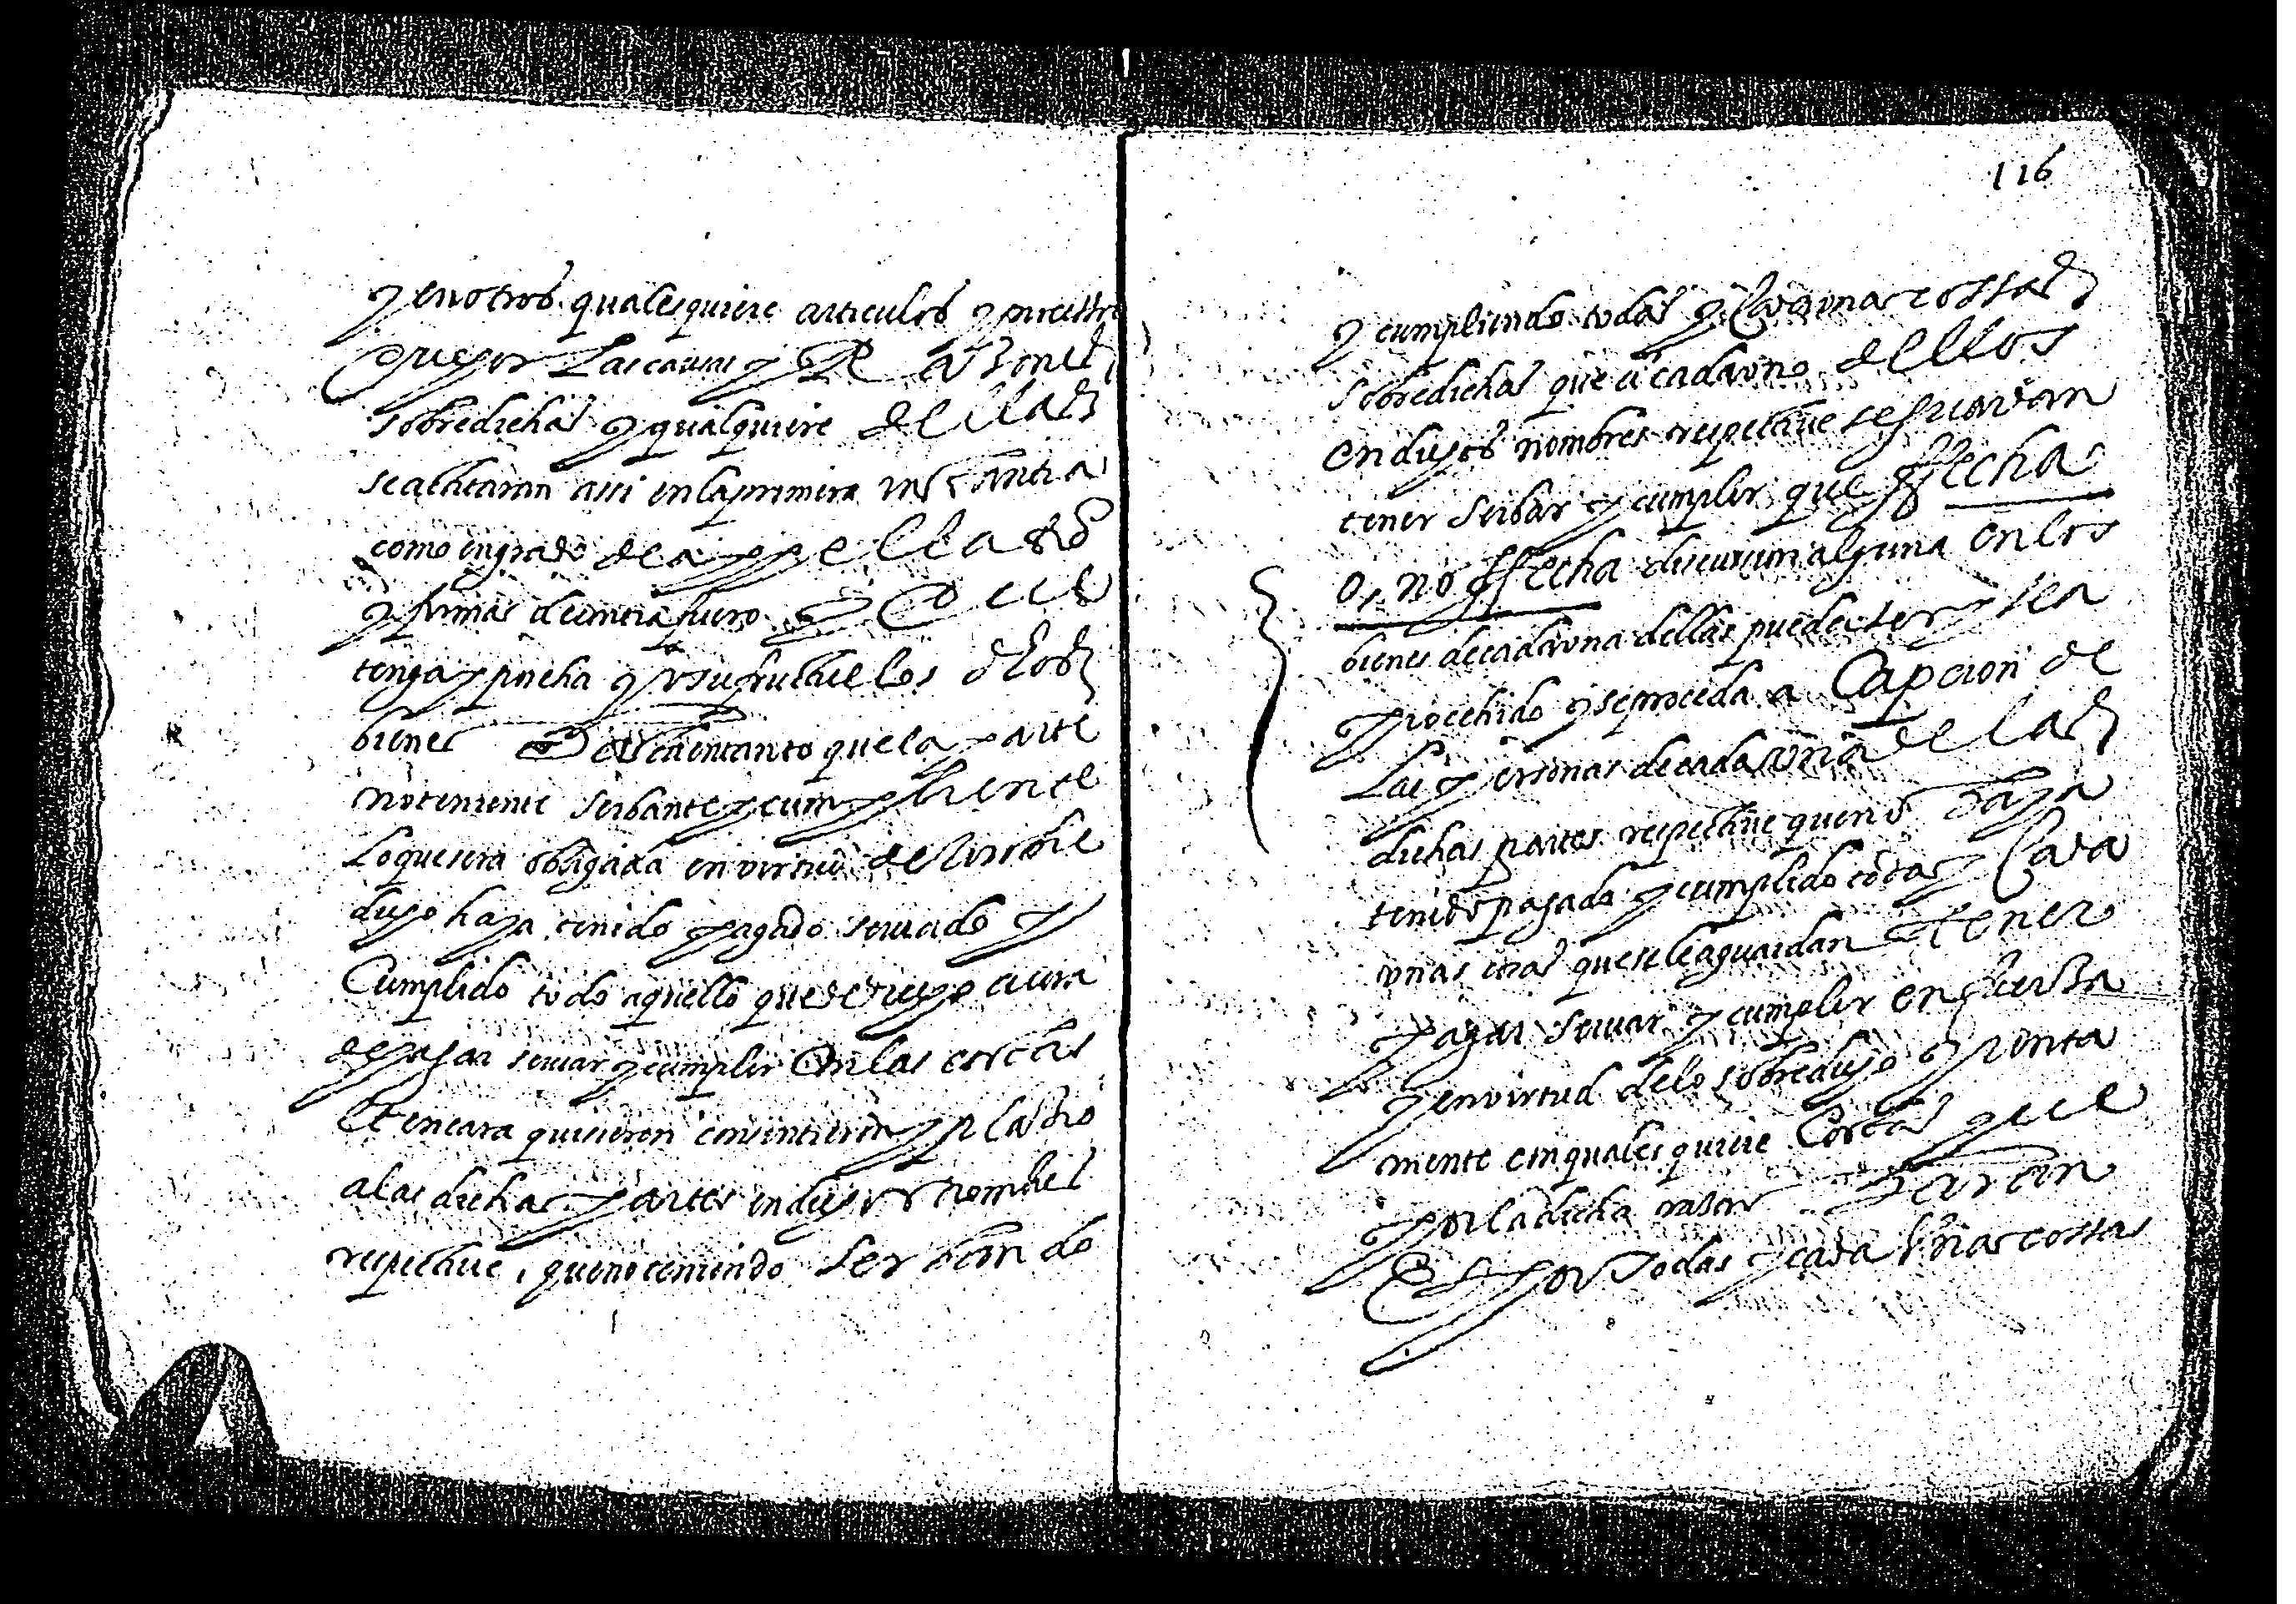 y en otros qualesquiere articulos y processos
que por las causas y Raçones
sobredichas y qualquiere dellas
se actitaran assi en la primera instantia
como en grado de appellacio
y firmas de contrafuero y que
tenga possecha y usufructue los dhos
bienes hasta en tanto que la parte
no teniente serbante y cumpliente
lo que sera obligada en virtud de lo sobre
dicho haya tenido pagado servado y
Cumplido todo aquello que dexepo a cerca
de pagar servar y cumplir Con las costas
Et encara quisieron consintieron y placio
a las dichas partes en dichos nombres
respective, que no teniendo serbando
116
y cumpliendo todas y Cada unas cossas
sobredichas que a cada uno dellos
en dichos nombres respective se guardan
tener serbar y cumplir que ffecha
o, no ffecha discussion alguna en los
bienes de cada una dellas pueda ser y sea
procehido y se proceda a Capcion de
Las personas de cada una de las
dichas partes respective que no haya
tenido pagado y cumplido todas y Cada
unas cosas que se le aguardan a tener
pagar servar y cumplir en fuerza
y en virtud de lo sobredicho y junta
mente con qualesquiere Costas que
por la dicha razon haran
Et por Todas y cada Unas cossas